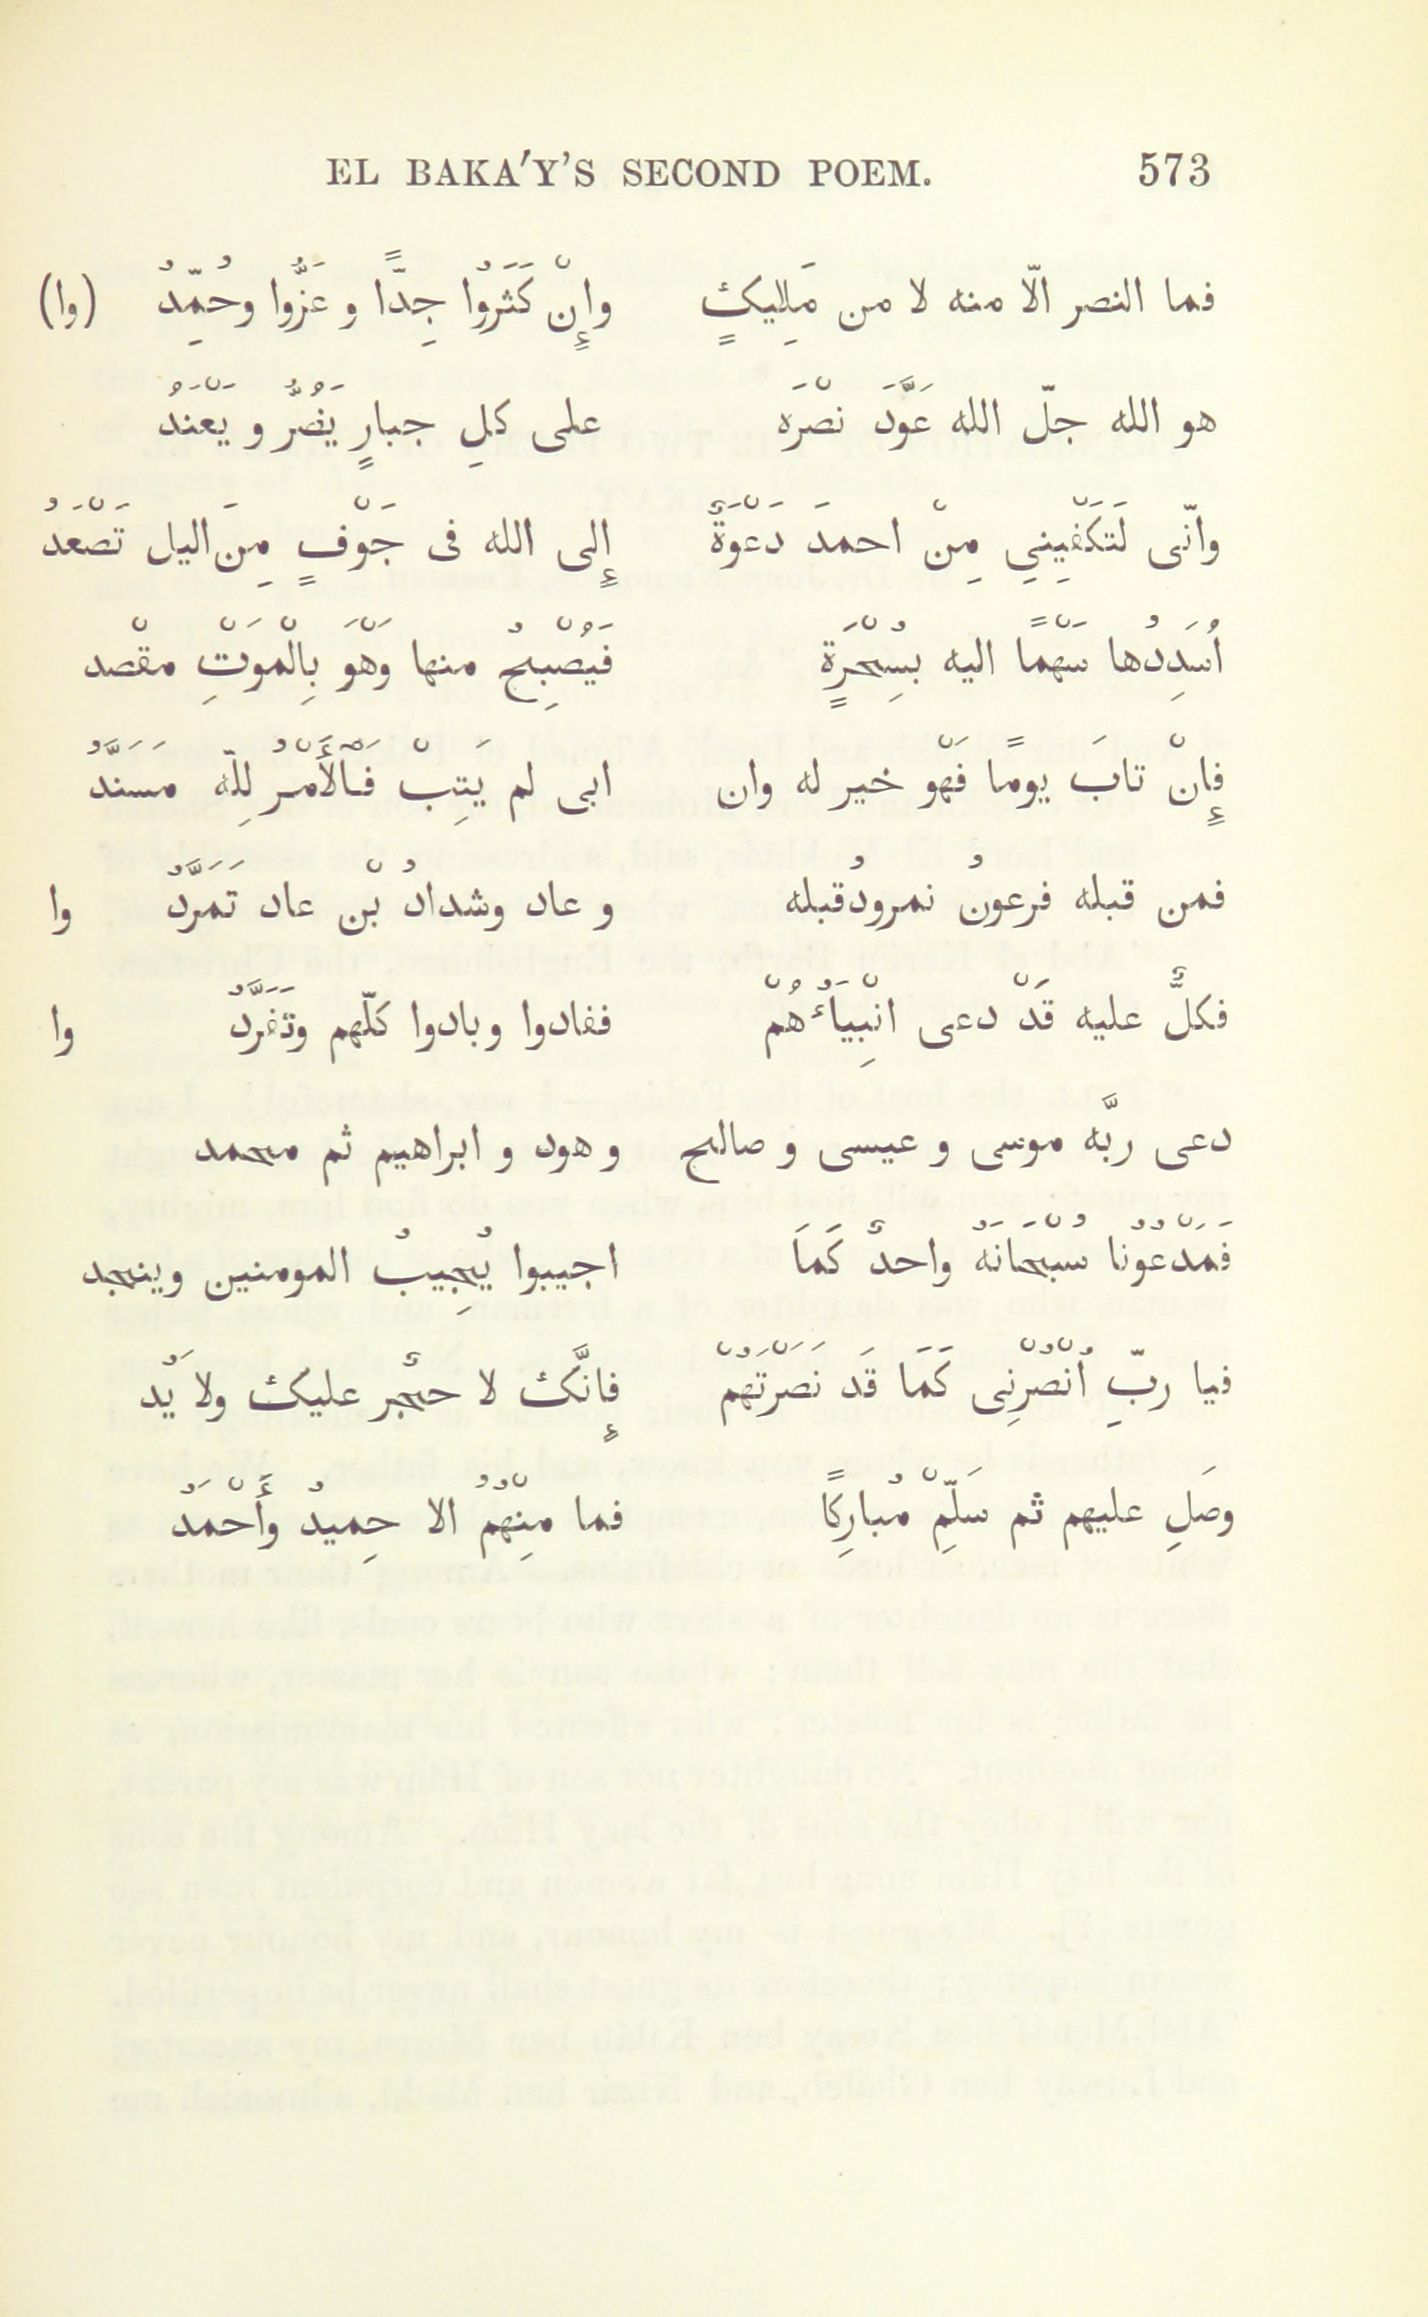 EL BAKA'Y'S SECOND POEM. 573
فما النصر الّا منه لا من مَلِليكٍ وإِنْ كَثَرُوا جِدًّا و عَزُّوا وحُمِّدُ (وا)
هو الله جلّ الله عَوَّدَ نصْرَه على كلِ جبارٍ يَضُرُّ و يَعْنَدُ
وانّى لَتَكْفِيِنيِ مِنْ احمدَ دَعْوَةٌ إِلى الله فى جَوْفٍ مِنَ اليل تَصْعَدُ
اُسَدِدُها سَهْمًا اليه بسِحُْرَةٍ فَيُصْبِحُ منها وَهْوَ بِالْموَْتِ مقْصد
فإِنْ تابَ يومًا فَهْو خير له وان ابى لم يَتِبْ فَٱلْأَمْرُ لِلّه مَسَنَّدُ
فمن قبله فرعونُ نمرودُ قبله و عاد وشدادُ بْن عاد تَمَرَّدُ وا
فكلٌّ عليه قَدْ دعى انْبِيَاُءُهُمْ ففادوا وبادوا كلّهم وتَفَرَّدُ وا
دعى ربَّه موسى و عيسى و صالح و هود و ابراهيم ثم محمد
فَمَدْعُوُنا سُبْحَانَهُ واحدٌ كَمَا اجيبوا يُجِيبُ المومنين وينجد
فيا ربِّ اُنْصُرْنِى كَمَا قَد نَصَرْتَهُمْ فإِنَّكَ لا حجْرٌ عليك ولا يَدُ
وصَلِ عليهم ثم سَلِّمْ مُبارِكًا فما مِنْهُمُ الا حِميدُ وأَحْمَدُ